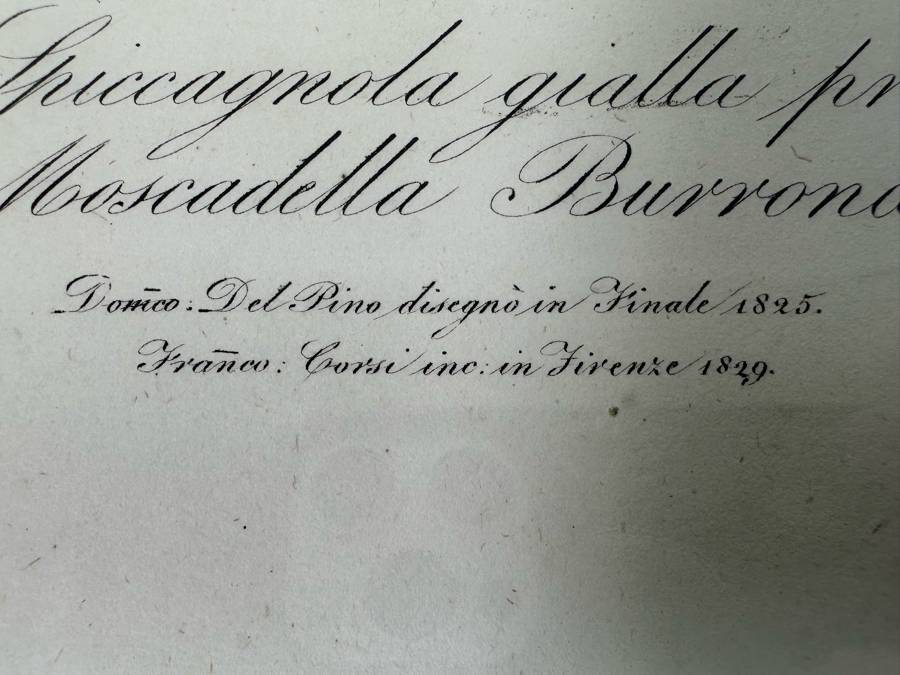 Spiccagnola gialla pr
Moscadella Burrona
Dom̅co: Del Pino disegnò in Finale 1825.
Fran̅co: Corsi inc: in Firenze 1829.